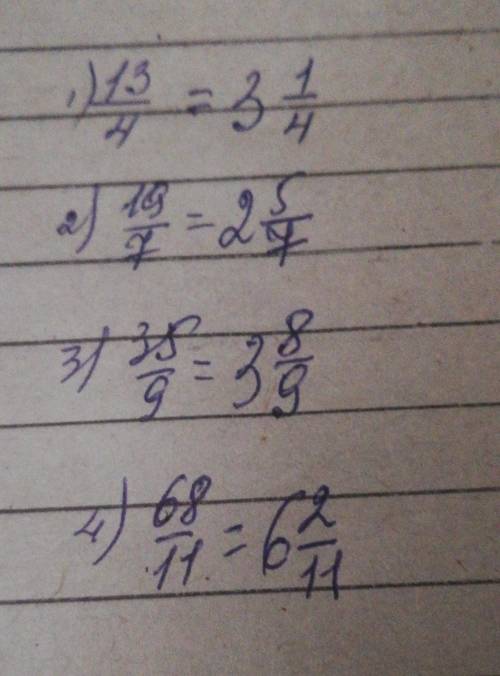 1) 13/4 = 3 1/4
2) 19/7 = 2 5/7
3) 35/9 = 3 8/9
4) 68/11 = 6 2/11